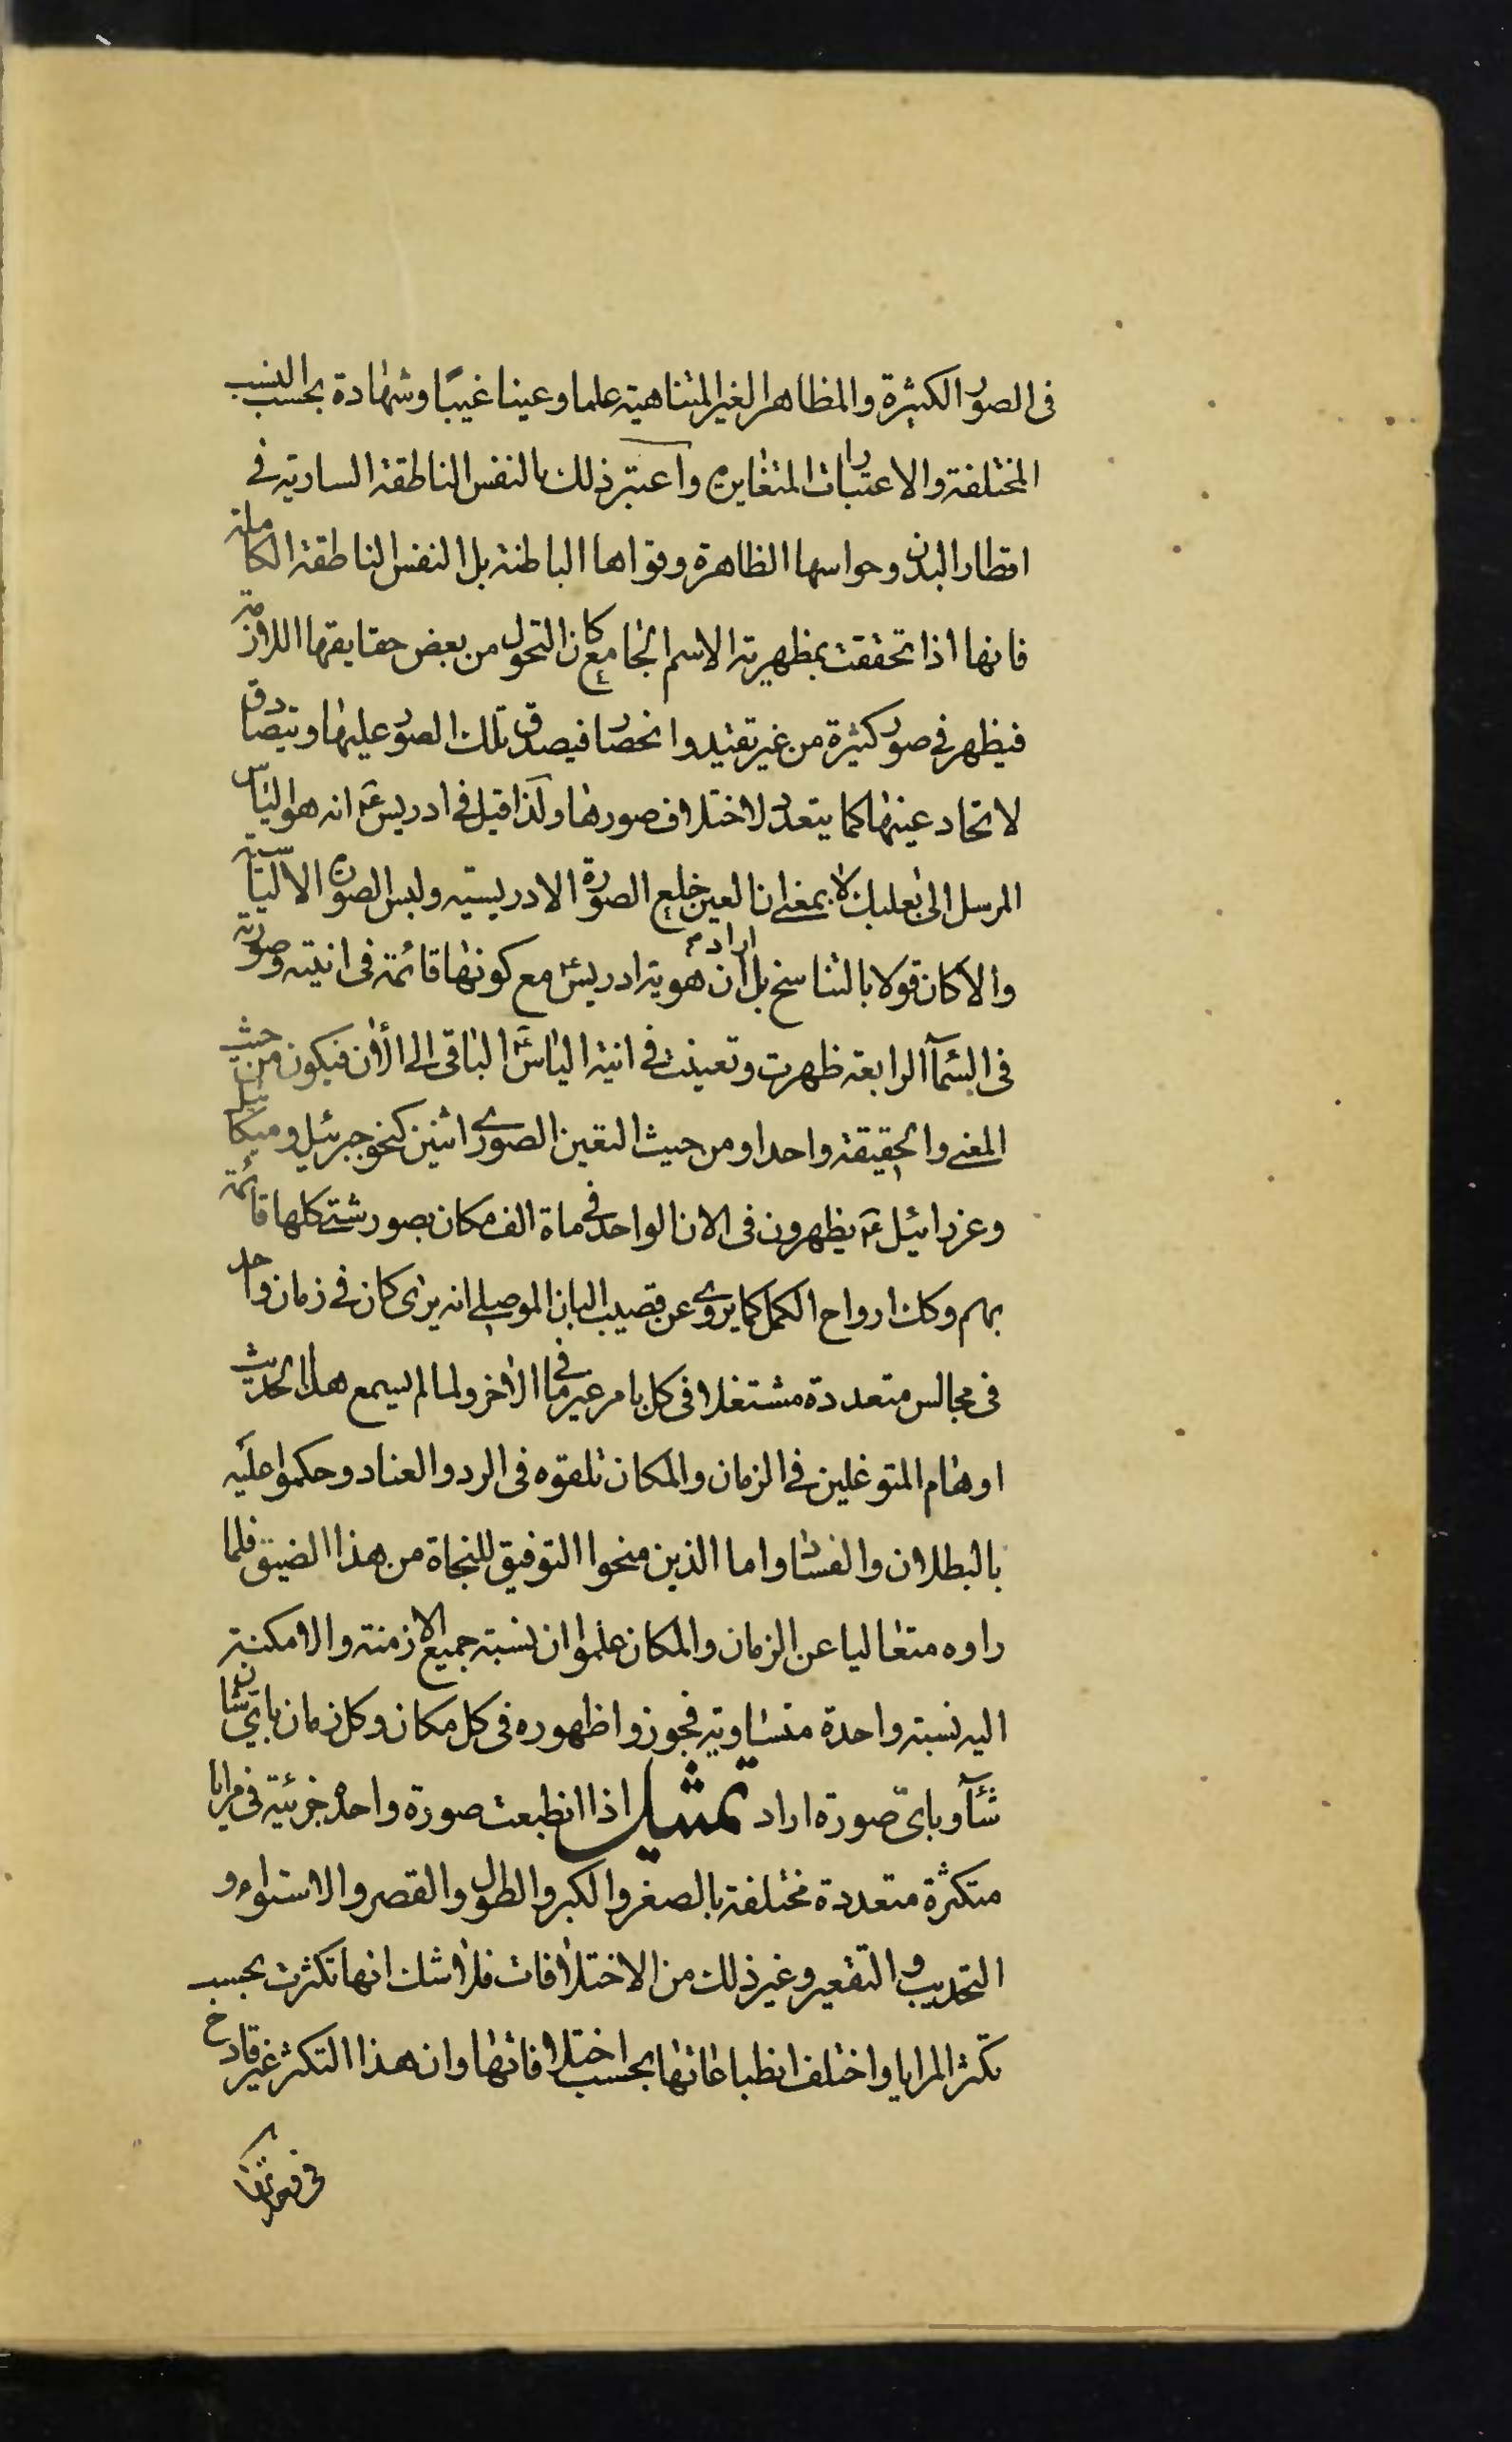 فى الصور الكثيرة والمظاهر الغير المتناهية علما وعينا غيبًا وشهادة بحسب النسب
المختلفة والاعتبارات المتغايرة واعتبر ذلك بالنفس الناطقة السارية فى
اقطار البدن وحواسها الظاهرة وقواها الباطنة بل النفس الناطقة الكاملة
فانها اذا تحققت بمظهرية الاسم الجامع كان التحول من بعض حقايقها اللازمة
فيظهر فى صور كثيرة من غير تقيد وانحصار فيصدق تلك الصور عليها ويتصادق
لاتحاد عينها كما يتعدد لاختلاف صورها ولذا قيل فى ادريس ع انه هو الياس
المرسل الى بعلبك لا بمعنى ان العين خلع الصورة الادريسيه ولبس الصورة الالياسية
والا كان قولا بالتناسخ بل اراد ان هوية ادريس ع مع كونها قائمة فى انيته وصورته
فى السمآ الرابعة ظهرت وتعينت فى انية الياس ع الباقى الى الأن فيكون من حيث
المعنى والحقيقة واحدا ومن حيث التعين الصورى اثنين كنحو جبرئيل وميكائيل
وعزرائيل ع يظهرون فى الان الواحد فى ماة الف مكان بصور شتى كلها قائمة
بهم وكك ارواح الكمل كما يروى عن قصيب البان الموصلى انه يرى كان فى زمان واحد
فى مجالس متعددة مشتغلا فى كل بامر غير ما فى الاخر ولما لم يسمع هذا الحديث
اوهام المتوغلين فى الزمان والمكان تلقوه فى الرد والعناد وحكموا عليه
بالبطلان والفساد واما الذين منحوا التوفيق للنجاة من هذا الضيق فلما
راوه متعاليا عن الزمان والمكان علموا ان نسبة جميع الازمنة والامكنة
اليه نسبة واحدة متساوية فجوزوا ظهوره فى كل مكان وكل زمان باىّ شان
شآء وباىّ صورة اراد تمثيل اذا انطبعت صورة واحدة جزئية فى مرايا
متكثرة متعددة مختلفة بالصغر والكبر والطول والقصر والاستواء و
التحديب والتقعير وغير ذلك من الاختلافات فلا شك انها تكثرت بحسب
تكثر المرايا واختلف انطباعاتها بحسب اختلافاتها وان هذا التكثر غير قادح
فى